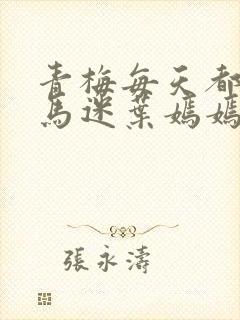 青梅每天都
馬迷葉媽媽
張永濤